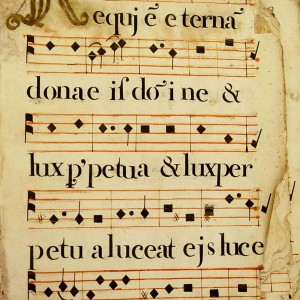 Requjē eternā
donae is dōine &
lux p'petua & luxper
petu a luceat ejs luce